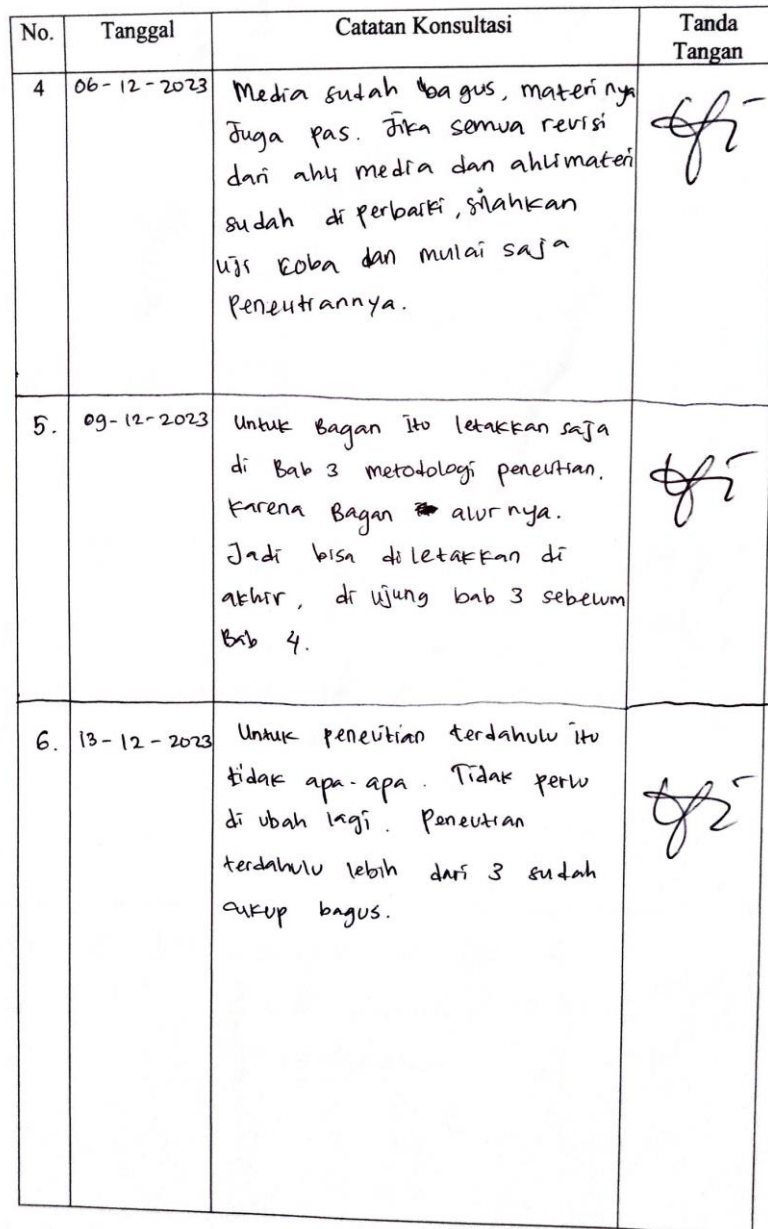 No. Tanggal Catatan Konsultasi Tanda
Tangan
4 06-12-2023 Media sudah bagus, materi nya
Juga pas. Jika semua revisi
dari ahli media dan ahli materi
sudah di perbaiki, silahkan
uji coba dan mulai saja
Penelitiannya.
5. 09-12-2023 Untuk Bagan Itu letakkan saja
di Bab 3 metodologi penelitian.
Karena Bagan alur nya.
Jadi bisa di letakkan di
akhir, di ujung bab 3 sebelum
Bab 4.
6. 13-12-2023 Untuk penelitian terdahulu itu
tidak apa-apa. Tidak perlu
di ubah lagi. Penelitian
terdahulu lebih dari 3 sudah
cukup bagus.